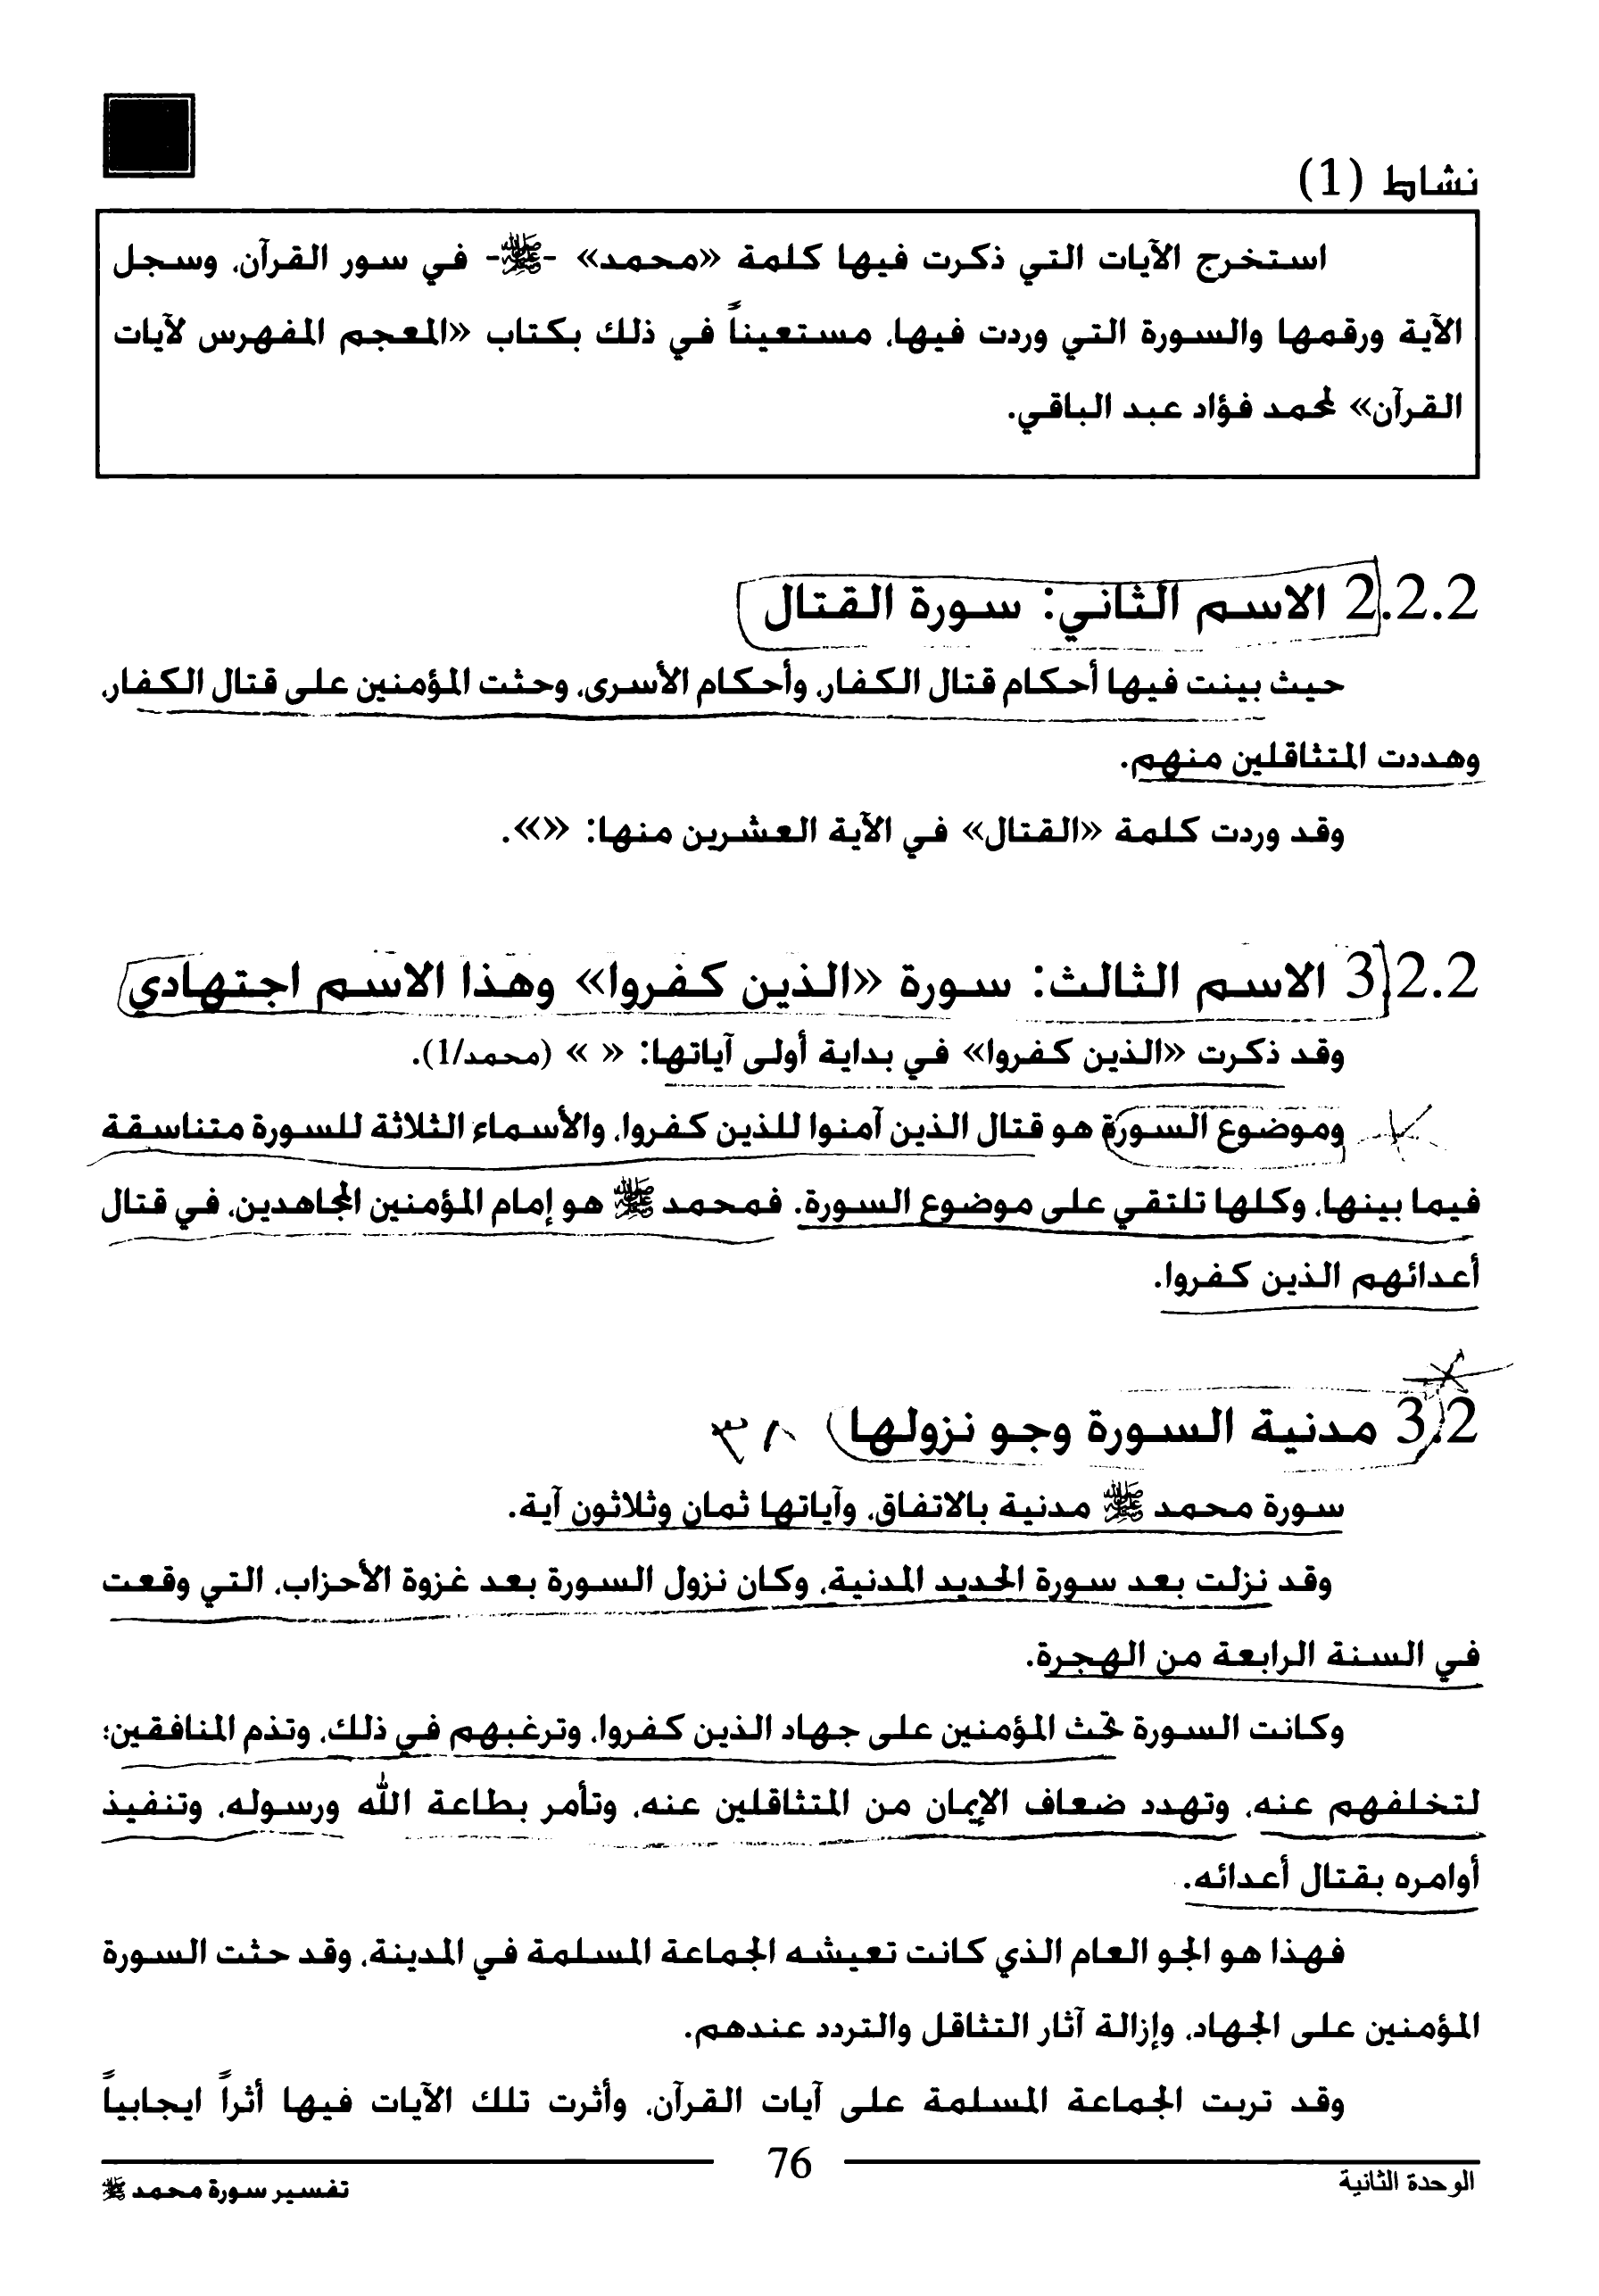 نشاط (1)
استخرج الآيات التي ذكرت فيها كلمة «محمد» -ﷺ- في سور القرآن، وسجل
الآية ورقمها والسورة التي وردت فيها، مستعيناً في ذلك بكتاب «المعجم المفهرس لآيات
القرآن» لمحمد فؤاد عبد الباقي.
2.2.2 الاسم الثاني: سورة القتال
حيث بينت فيها أحكام قتال الكفار، وأحكام الأسرى، وحثت المؤمنين على قتال الكفار،
وهددت المتثاقلين منهم.
وقد وردت كلمة «القتال» في الآية العشرين منها: «».
3.2.2 الاسم الثالث: سورة «الذين كفروا» وهذا الاسم اجتهادي
وقد ذكرت «الذين كفروا» في بداية أولى آياتها: « » (محمد/1).
وموضوع السورة هو قتال الذين آمنوا للذين كفروا، والأسماء الثلاثة للسورة متناسقة
فيما بينها، وكلها تلتقي على موضوع السورة. فمحمد ﷺ هو إمام المؤمنين المجاهدين، في قتال
أعدائهم الذين كفروا.
3.2 مدنية السورة وجو نزولها ٣٨
سورة محمد ﷺ مدنية بالاتفاق، وآياتها ثمان وثلاثون آية.
وقد نزلت بعد سورة الحديد المدنية، وكان نزول السورة بعد غزوة الأحزاب، التي وقعت
في السنة الرابعة من الهجرة.
وكانت السورة تحث المؤمنين على جهاد الذين كفروا، وترغبهم في ذلك، وتذم المنافقين؛
لتخلفهم عنه، وتهدد ضعاف الإيمان من المتثاقلين عنه، وتأمر بطاعة الله ورسوله، وتنفيذ
أوامره بقتال أعدائه.
فهذا هو الجو العام الذي كانت تعيشه الجماعة المسلمة في المدينة، وقد حثت السورة
المؤمنين على الجهاد، وإزالة آثار التثاقل والتردد عندهم.
وقد تربت الجماعة المسلمة على آيات القرآن، وأثرت تلك الآيات فيها أثراً ايجابياً
76
الوحدة الثانية
تفسير سورة محمد ﷺ